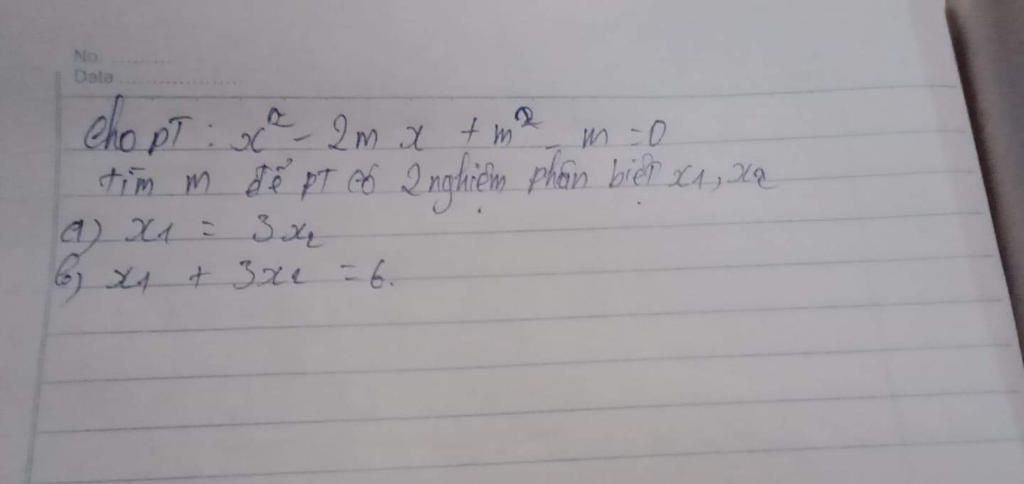 No. ..........
Date ....................
Cho pT : x² - 2m x + m² - m = 0
tìm m để pT có 2 nghiệm phân biệt x1, x2
a) x1 = 3x2
b) x1 + 3x2 = 6.